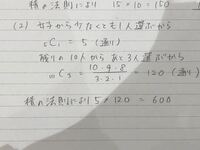 積の法則により 15×10=150
(2) 女子から少なくとも1人選ぶから
₅C₁ = 5 (通り)
残りの10人から あと3人選ぶから
₁₀C₃ = 10・9・8 / 3・2・1 = 120 (通り)
積の法則により 5×120 = 600